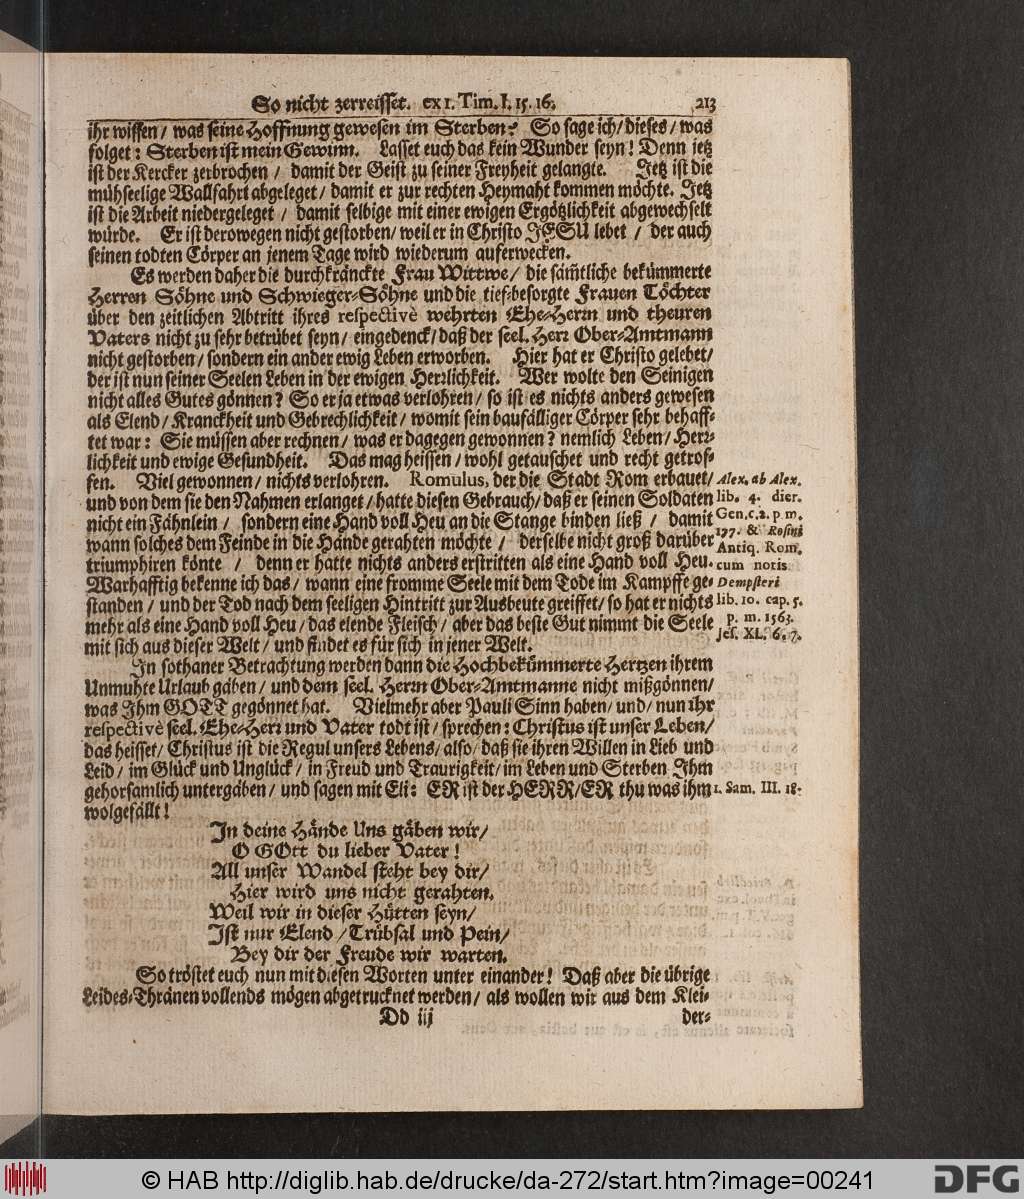 So nicht zerreisset. ex 1. Tim. I. 15. 16. 213
ihr wissen / was seine Hoffnung gewesen im Sterben? So sage ich / dieses / was
folget: Sterben ist mein Gewinn. Lasset euch das kein Wunder seyn! Denn jetz
ist der Kercker zerbrochen / damit der Geist zu seiner Freyheit gelangte. Jetz ist die
mühseelige Wallfahrt abgeleget / damit er zur rechten Heymaht kommen möchte. Jetz
ist die Arbeit niedergeleget / damit selbige mit einer ewigen Ergötzlichkeit abgewechselt
würde. Er ist derowegen nicht gestorben / weil er in Christo JESU lebet / der auch
seinen todten Cörper an jenem Tage wird wiederum auferwecken.
Es werden daher die durchkränckte Frau Wittwe / die säm̃tliche bekümmerte
Herren Söhne und Schwieger-Söhne und die tief-besorgte Frauen Töchter
über den zeitlichen Abtritt ihres respectivè wehrten Ehe-Herrn und theuren
Vaters nicht zu sehr betrübet seyn / eingedenck / daß der seel. Herr Ober-Amtmann
nicht gestorben / sondern ein ander ewig Leben erworben. Hier hat er Christo gelebet /
der ist nun seiner Seelen Leben in der ewigen Herrlichkeit. Wer wolte den Seinigen
nicht alles Gutes gönnen? So er ja etwas verlohren / so ist es nichts anders gewesen
als Elend / Kranckheit und Gebrechlichkeit / womit sein baufälliger Cörper sehr behaff-
tet war: Sie müssen aber rechnen / was er dagegen gewonnen? nemlich Leben / Herr-
lichkeit und ewige Gesundheit. Das mag heissen / wohl getauschet und recht getrof-
fen. Viel gewonnen / nichts verlohren. Romulus, der die Stadt Rom erbauet /
und von dem sie den Nahmen erlanget / hatte diesen Gebrauch / daß er seinen Soldaten
nicht ein Fähnlein / sondern eine Hand voll Heu an die Stange binden ließ / damit
wann solches dem Feinde in die Hände gerahten möchte / derselbe nicht groß darüber
triumphiren könte / denn er hatte nichts anders erstritten als eine Hand voll Heu.
Warhafftig bekenne ich das / wann eine fromme Seele mit dem Tode im Kampffe ge-
standen / und der Tod nach dem seeligen Hintritt zur Ausbeute greiffet / so hat er nichts
mehr als eine Hand voll Heu / das elende Fleisch / aber das beste Gut nimmt die Seele
mit sich aus dieser Welt / und findet es für sich in jener Welt.
Alex. ab Alex.
lib. 4. dier.
Gen. c. 2. p. m.
177. & Rosini
Antiq. Rom.
cum notis
Dempsteri
lib. 10. cap. 5.
p. m. 1563.
Jes. XL. 6. 7.
In sothaner Betrachtung werden dann die Hochbekümmerte Hertzen ihrem
Unmuhte Urlaub gäben / und dem seel. Herrn Ober-Amtmanne nicht mißgönnen /
was Jhm GOTT gegönnet hat. Vielmehr aber Pauli Sinn haben / und / nun ihr
respectivè seel. Ehe-Herr und Vater todt ist / sprechen: Christus ist unser Leben /
das heisset / Christus ist die Regul unsers Lebens / also / daß sie ihren Willen in Lieb und
Leid / im Glück und Unglück / in Freud und Traurigkeit / im Leben und Sterben Jhm
gehorsamlich untergäben / und sagen mit Eli: ER ist der HERR / ER thu was ihm
wolgefällt!
1. Sam. III. 18.
In deine Hände Uns gäben wir /
O GOtt du lieber Vater!
All unser Wandel steht bey dir /
Hier wird uns nicht gerahten.
Weil wir in dieser Hütten seyn /
Ist nur Elend / Trübsal und Pein /
Bey dir der Freude wir warten.
So tröstet euch nun mit diesen Worten unter einander! Daß aber die übrige
Leides-Thränen vollends mögen abgetrucknet werden / als wollen wir aus dem Klei-
Dd iij der-
© HAB http://diglib.hab.de/drucke/da-272/start.htm?image=00241
DFG